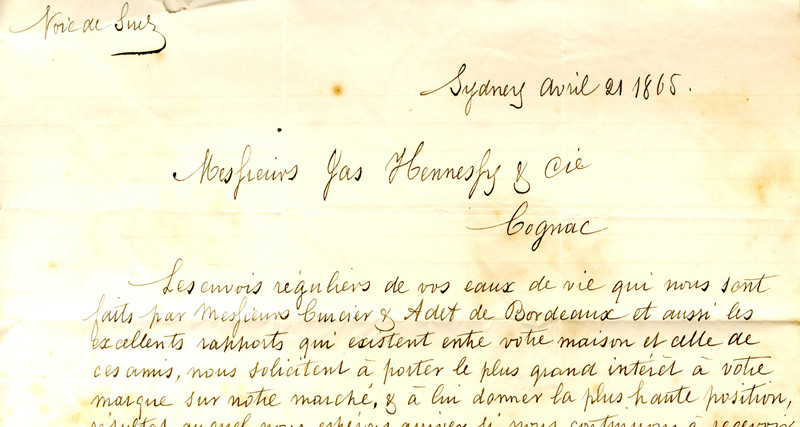 Voie de Suez
Sydney Avril 21 1865.
Messieurs Jas Hennessy & Cie
Cognac
Les envois réguliers de vos eaux de vie qui nous sont
faits par Messieurs Curcier & Adet de Bordeaux et aussi les
excellents rapports qui existent entre votre maison et celle de
ces amis, nous sollicitent à porter le plus grand intérêt à votre
marque sur notre marché, & à lui donner la plus haute position,
résultat auquel nous espérons arriver si nous continuons à recevoir